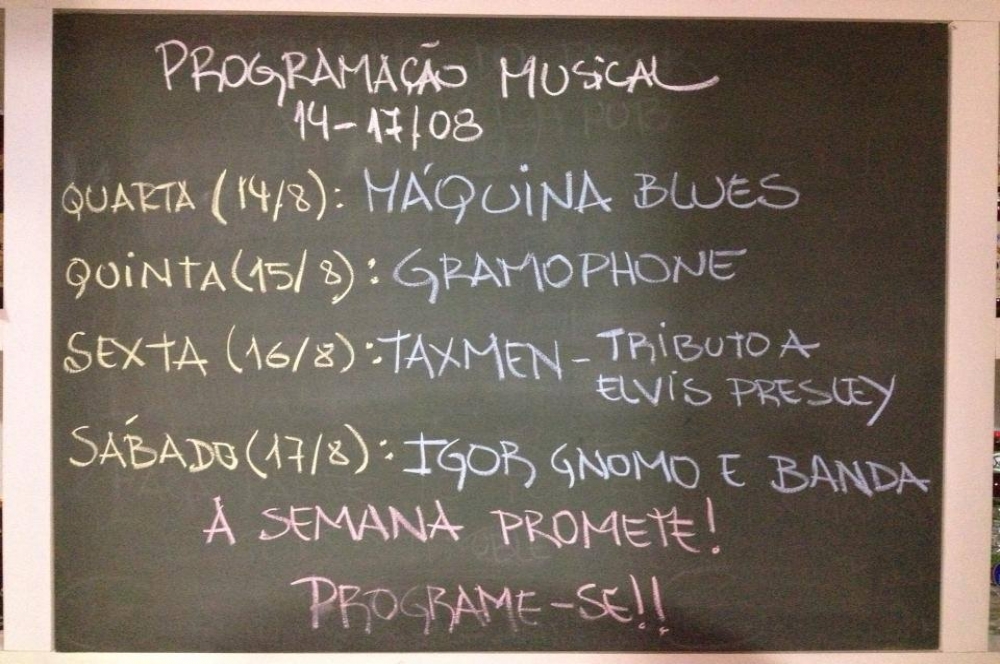 PROGRAMAÇÃO MUSICAL
14-17/08
QUARTA (14/8): MÁQUINA BLUES
QUINTA (15/8): GRAMOPHONE
SEXTA (16/8): TAXMEN - TRIBUTO A
ELVIS PRESLEY
SÁBADO (17/8): IGOR GNOMO E BANDA
A SEMANA PROMETE!
PROGRAME-SE!!